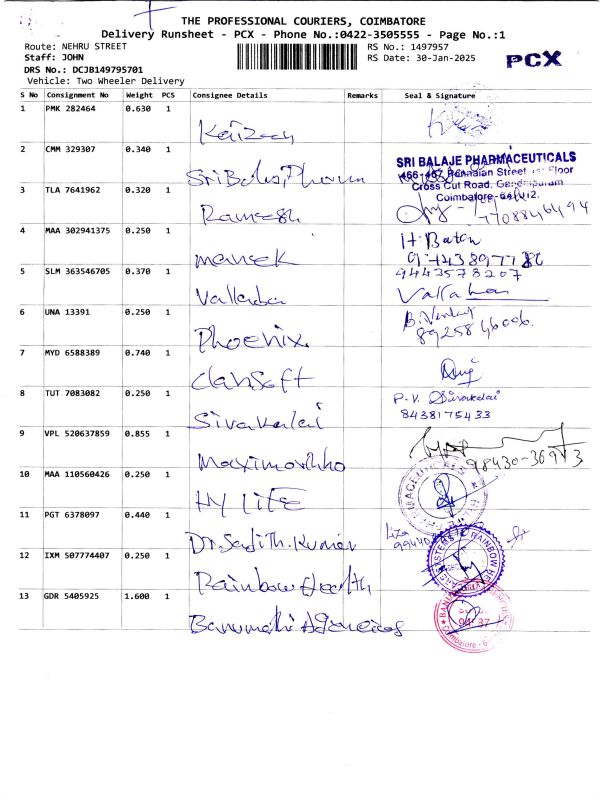 THE PROFESSIONAL COURIERS, COIMBATORE
Delivery Runsheet - PCX - Phone No.:0422-3505555 - Page No.:1
Route: NEHRU STREET
RS No.: 1497957
Staff: JOHN
RS Date: 30-Jan-2025
PCX
DRS No.: DCJB149795701
Vehicle: Two Wheeler Delivery
S No Consignment No Weight PCS Consignee Details Remarks Seal & Signature
1 PMK 282464 0.630 1
2 CMM 329307 0.340 1 Sri Balaje Pharma
SRI BALAJE PHARMACEUTICALS
Street Floor
Cross Cut Road, Gandhipuram
3 TLA 7641962 0.320 1 Rameesh
Coimbatore-641012.
7708846494
4 MAA 302941375 0.250 1 maneek
5 SLM 363546705 0.370 1
9443578207
6 UNA 13391 0.250 1 Phoenix
8925846006.
7 MYD 6588389 0.740 1 ClanSoft
8 TUT 7083082 0.250 1 Sivakalai
P.V. Sivakalai
8438175433
9 VPL 520637859 0.855 1
10 MAA 110560426 0.250 1 HY LIFE
11 PGT 6378097 0.440 1
12 IXM 507774407 0.250 1 Rainbow Health
RAINBOW
13 GDR 5405925 1.600 1 Banumathi Agencies
Coimbatore